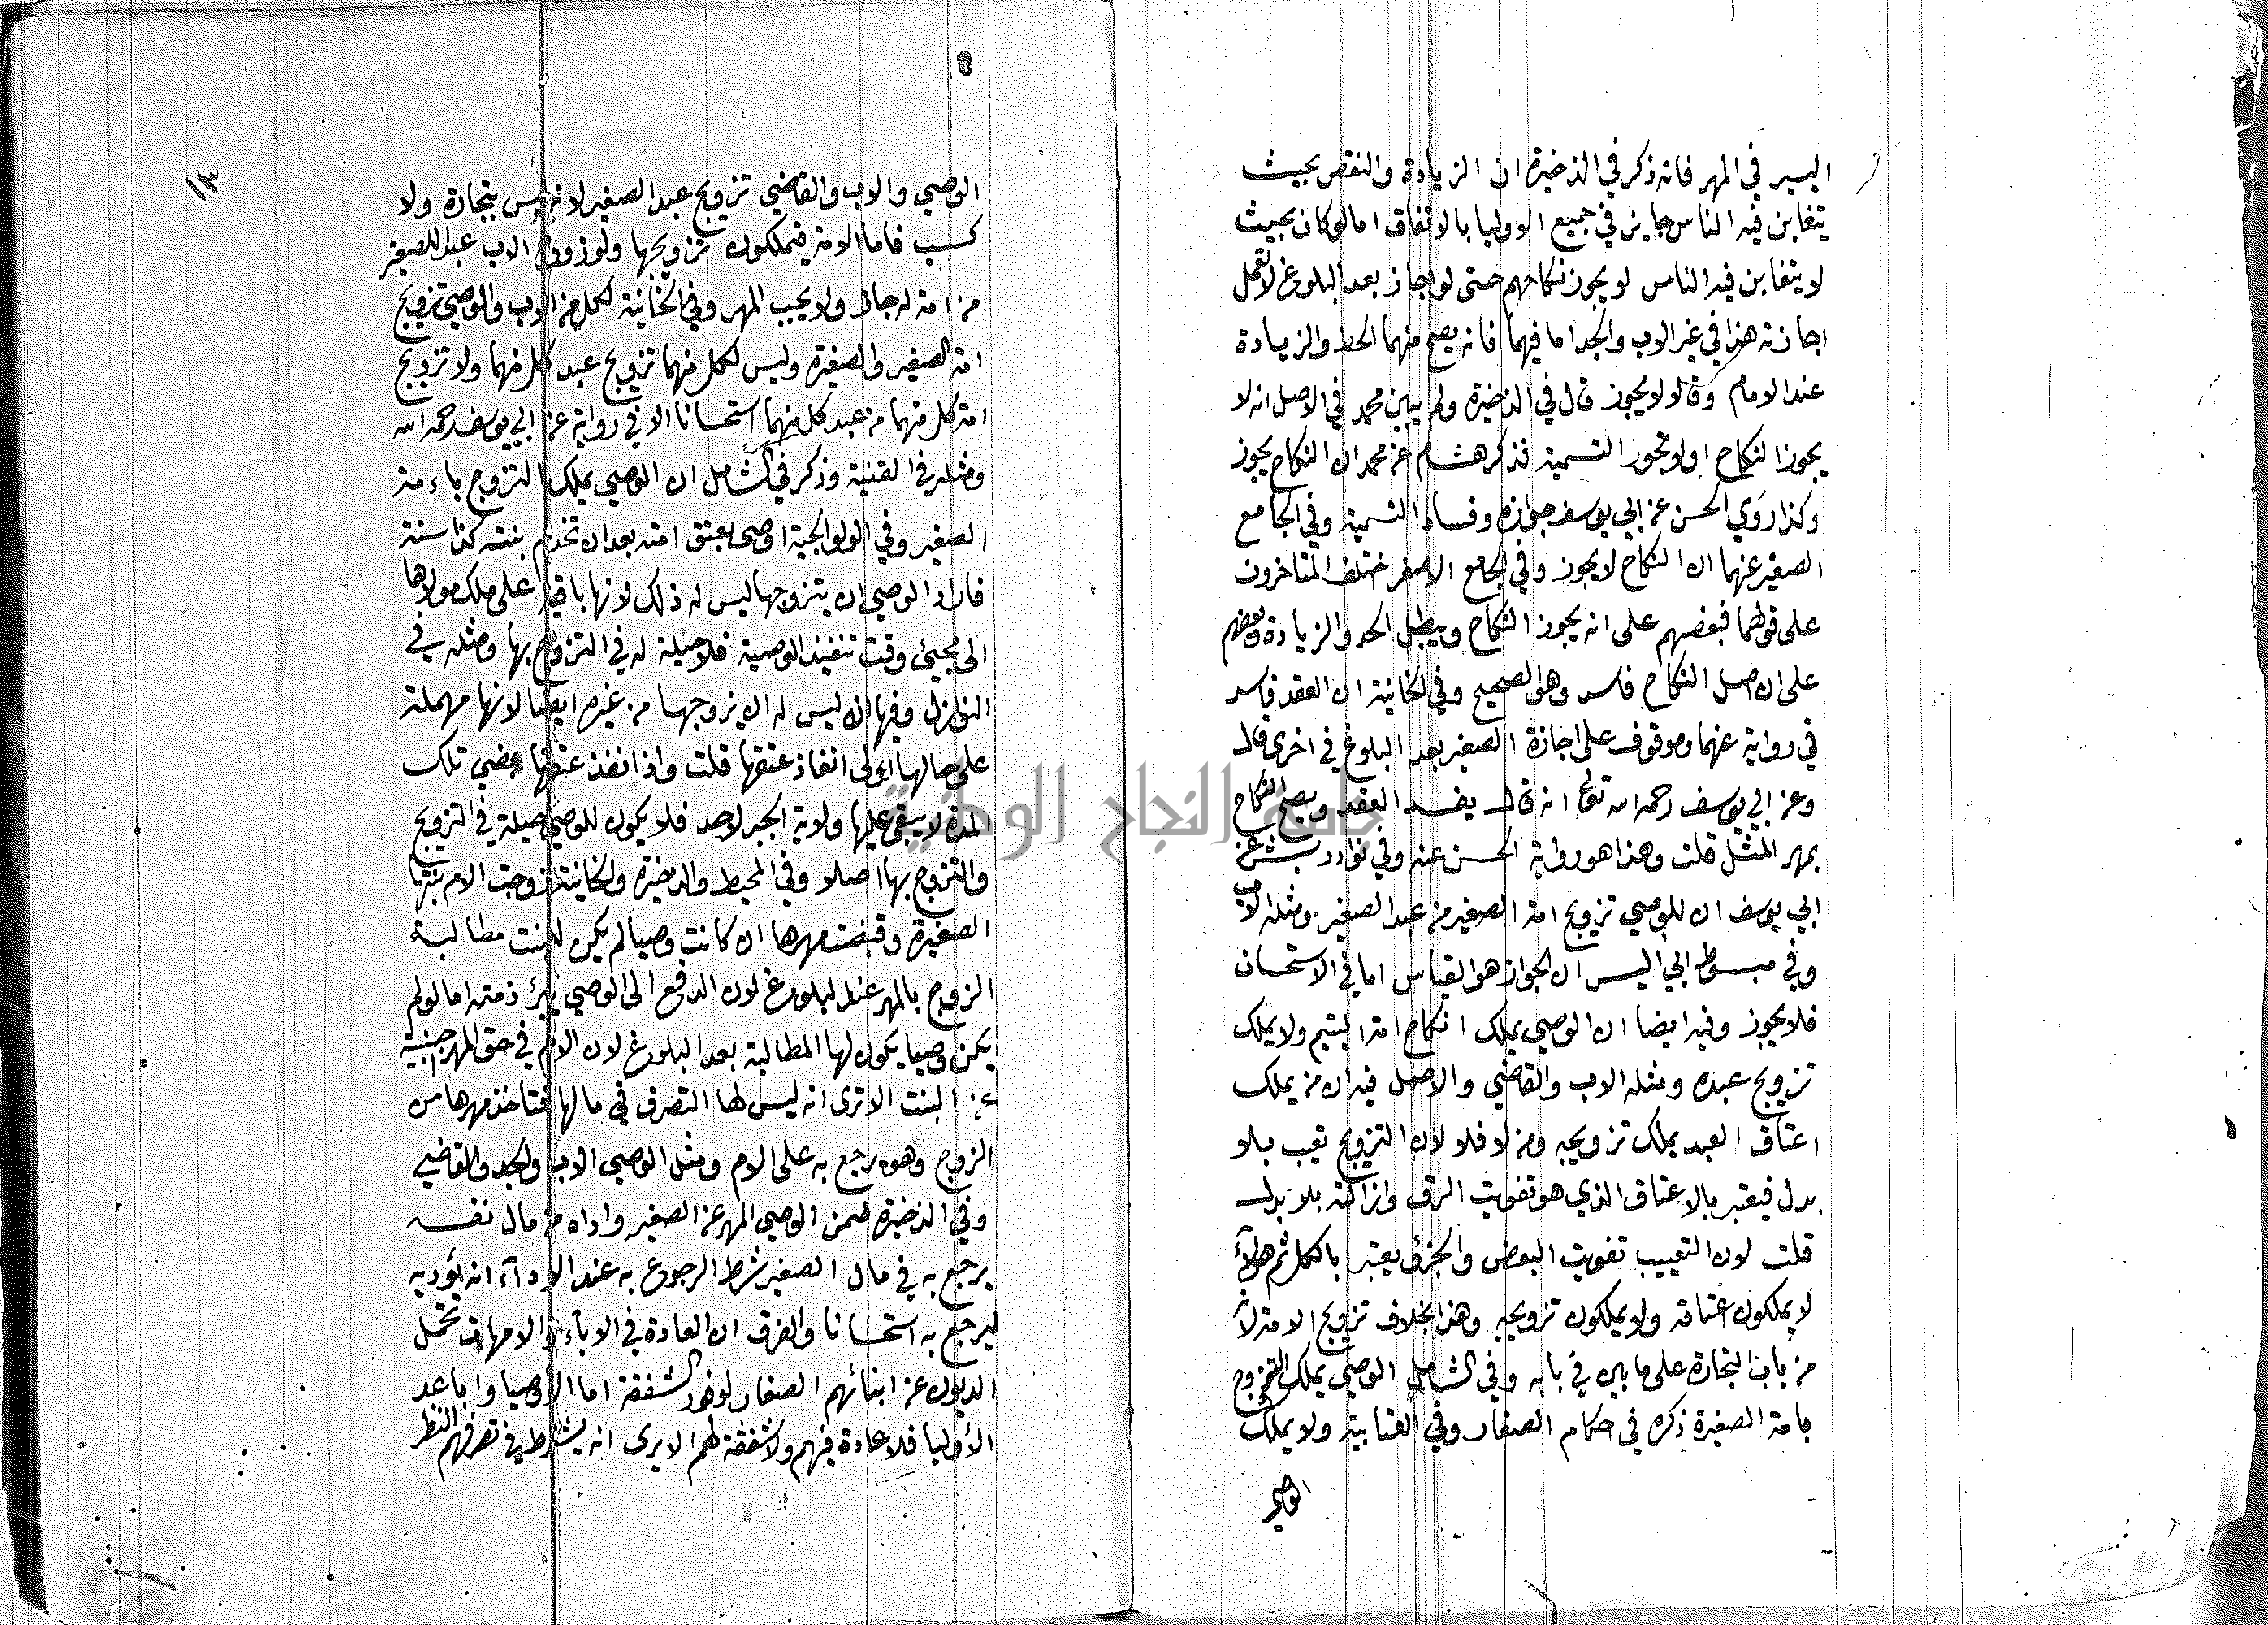 اليسير في المهر فانه ذكر في الذخيرة ان الزيادة والنقص بحيث
يتغابن فيه الناس جايز في جميع الاوليا بالاتفاق اما لو كان بحيث
لا يتغابن فيه الناس لا يجوز نكاحهم حتى لو اجاز بعد البلوغ لا تعمل
اجازته هذا في غير الاب والجد اما فيهما فانه يصح منهما الحط والزيادة
عند الامام وقالا لا يجوز قال في الذخيرة ولم يبين محمد في الاصل انه لا
يجوز النكاح او لا تجوز التسمية فذكر هشام عن محمد ان النكاح يجوز
وكذا روي الحسن عن ابي يوسف جوازه وفساد التسمية وفي الجامع
الصغير عنهما ان النكاح لا يجوز وفي الجامع الاصغر اختلف المتاخرون
على قولهما فبعضهم على انه يجوز النكاح ويبطل الحد والزيادة وبعضهم
على ان اصل النكاح فاسد وهو الصحيح وفي الخانية ان العقد فاسد
في رواية عنهما وموقوف على اجازة الصغير بعد البلوغ في اخرى قال
وعن ابي يوسف رحمه الله تعا انه قال يفسد العقد ويصح النكاح
بمهر المثل قلت وهذا هو رواية الحسن عنه وفي نوادر بشر عن
ابي يوسف ان للوصي تزويج امة الصغير من عبد الصغير ومثله الاب
وفي مبسوط ابي اليسر ان الجواز هو القياس اما في الاستحسان
فلا يجوز وفيه ايضا ان الوصي يملك انكاح امة اليتيم ولا يملك
تزويج عبده ومثله الاب والقاضي والاصل فيه ان من يملك
اعتاق العبد يملك تزويجه ومن لا فلا لان التزويج تعيب بلا
بدل فيعتبر بالاعتاق الذي هو تفويت الرق وازالته بلا بدل
قلت لان التعييب تفويت البعض والجزؤ يعتبر بالكل ثم هولاء
لا يملكون اعتاقه ولا يملكون تزويجه وهذا بخلاف تزويج الامة لانه
من باب التجارة على ما بين في بابه وفي الشامل الوصي يملك التزوج
بامة الصغيرة ذكره في احكام الصغار وفي العتابية ولا يملك
الوصي
الوصي والاب والقاضي تزويج عبد الصغير لانه ليس بتجارة ولا
كسب فاما الامة فيملكون تزويجها ولو زوج الاب عبدا للصغير
من امة له جاز ولا يجب المهر وفي الخانية لكل من الاب والوصي تزويج
امة الصغير والصغيرة وليس لكل منهما تزويج عبد كل منهما ولا تزويج
امة كل منهما من عبد كل منهما استحسانا الا في رواية عن ابي يوسف رحمه الله
ومثله في القنية وذكر في الشامل ان الوصي يملك التزوج باءمة
الصغير وفي الولوالجية اوصى بعتق امته بعد ان تخدم بنته كذا سنة
فاراد الوصي ان يتزوجها ليس له ذلك لانها باقية على ملك مولاها
الى مجيئ وقت تنفيذ الوصية فلا حيلة له في التزوج بها ومثله في
النوازل وفيها ان ليس له ان يزوجها من غيره ايضا لانها مهملة
على حالها الى انفاذ عتقها قلت واذا نفذ عتقها بمضي تلك
المدة لا يبقى عليها ولاية الجبر لاحد فلا يكون للوصي حيلة في التزويج
والتزوج بها اصلا وفي المحيط والذخيرة والخانية زوجت الام بنتها
الصغيرة وقبضت مهرها ان كانت وصيا لم يكن للبنت مطالبة
الزوج بالمهر عند البلوغ لان الدفع الى الوصي يبرئ ذمته اما لو لم
يكن وصيا يكون لها المطالبة بعد البلوغ لان الام في حق المهر اجنبية
عن البنت الا ترى انه ليس لها التصرف في مالها فتاخذ مهرها من
الزوج وهو يرجع به على الام ومثل الوصي الاب والجد والقاضي
وفي الذخيرة ضمن الوصي المهر عن الصغير واداه من مال نفسه
يرجع به في مال الصغير شرط الرجوع به عند الادآء انه يؤديه
ليرجع به استحسانا والفرق ان العادة في الابآء والامهات تحمل
الديون عن ابنائهم الصغار لوفور الشفقة اما الاوصيا واباعد
الأوليا فلا عادة فيهم ولا شفقة لهم الا يرى انه يشترط في تصرفهم النظر
جامعة النجاح الوطنية